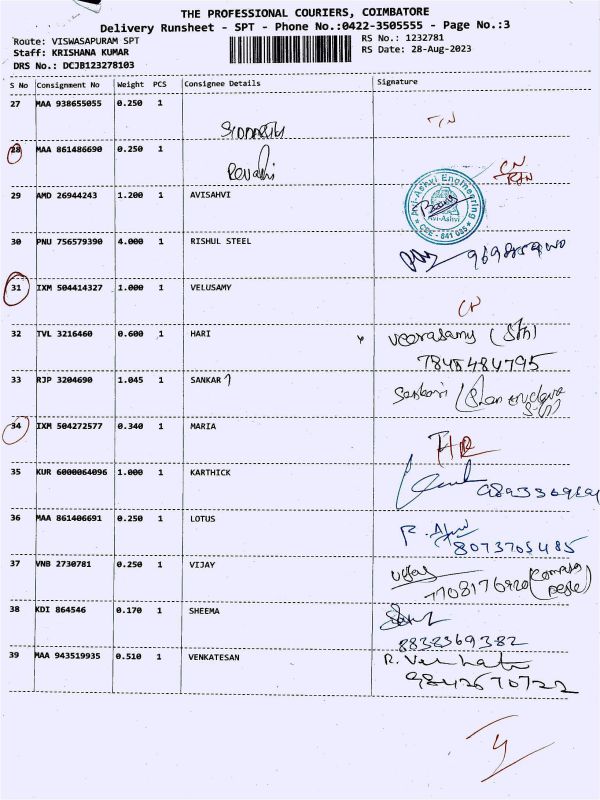 THE PROFESSIONAL COURIERS, COIMBATORE
Delivery Runsheet - SPT - Phone No.:0422-3505555 - Page No.:3
Route: VISWASAPURAM SPT
RS No.: 1232781
Staff: KRISHANA KUMAR
RS Date: 28-Aug-2023
DRS No.: DCJB123278103
S No Consignment No Weight PCS Consignee Details Signature
27 MAA 938655055 0.250 1
28 MAA 861486690 0.250 1
Revathi
CN
29 AMD 26944243 1.200 1 AVISAHVI
Avi-Ashvi Engineering
Avi-Ashvi
CBE - 641 035
30 PNU 756579390 4.000 1 RISHUL STEEL
31 IXM 504414327 1.000 1 VELUSAMY
CN
32 TVL 3216460 0.600 1 HARI
Veerasamy
7848484795
33 RJP 3204690 1.045 1 SANKAR
Sankari
34 IXM 504272577 0.340 1 MARIA
35 KUR 6000064096 1.000 1 KARTHICK
36 MAA 861406691 0.250 1 LOTUS
8073705485
37 VNB 2730781 0.250 1 VIJAY
Vijay
7708176920
38 KDI 864546 0.170 1 SHEEMA
8838369382
39 MAA 943519935 0.510 1 VENKATESAN
R. Venkate
9842670722